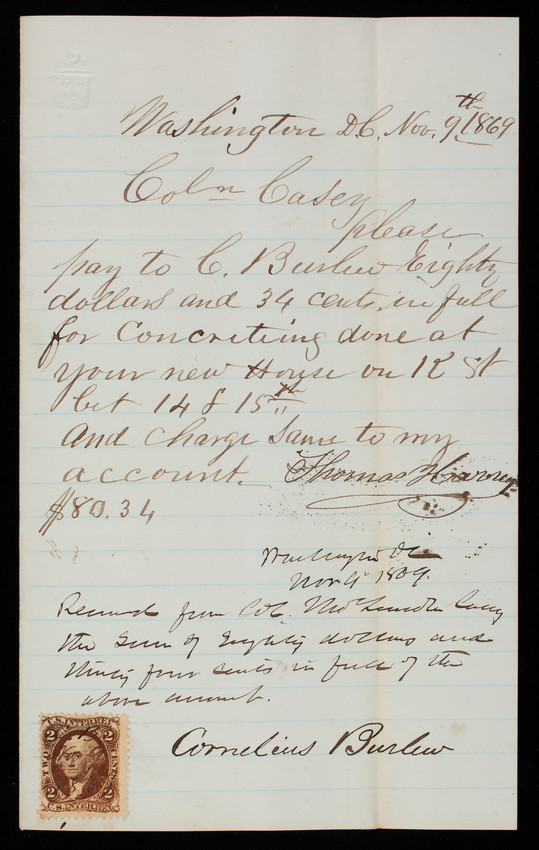 Washington D.C. Nov. 9th 1869
Coln Casey
please
pay to C. Burlew Eighty
dollars and 34 cents, in full
for Concreting done at
your new House on K St
bet 14 & 15th
and charge Same to my
account. Thomas Harvey
$80.34
Washington DC
Nov 9 1869.
Received from Col. Thos Lincoln Casey
the Sum of Eighty dollars and
thirty four cents in full of the
above amount.
Cornelius Burlew
U.S. INTER. REV.
2 2
TWO CENTS
2 2
U.S. INTER. REV.